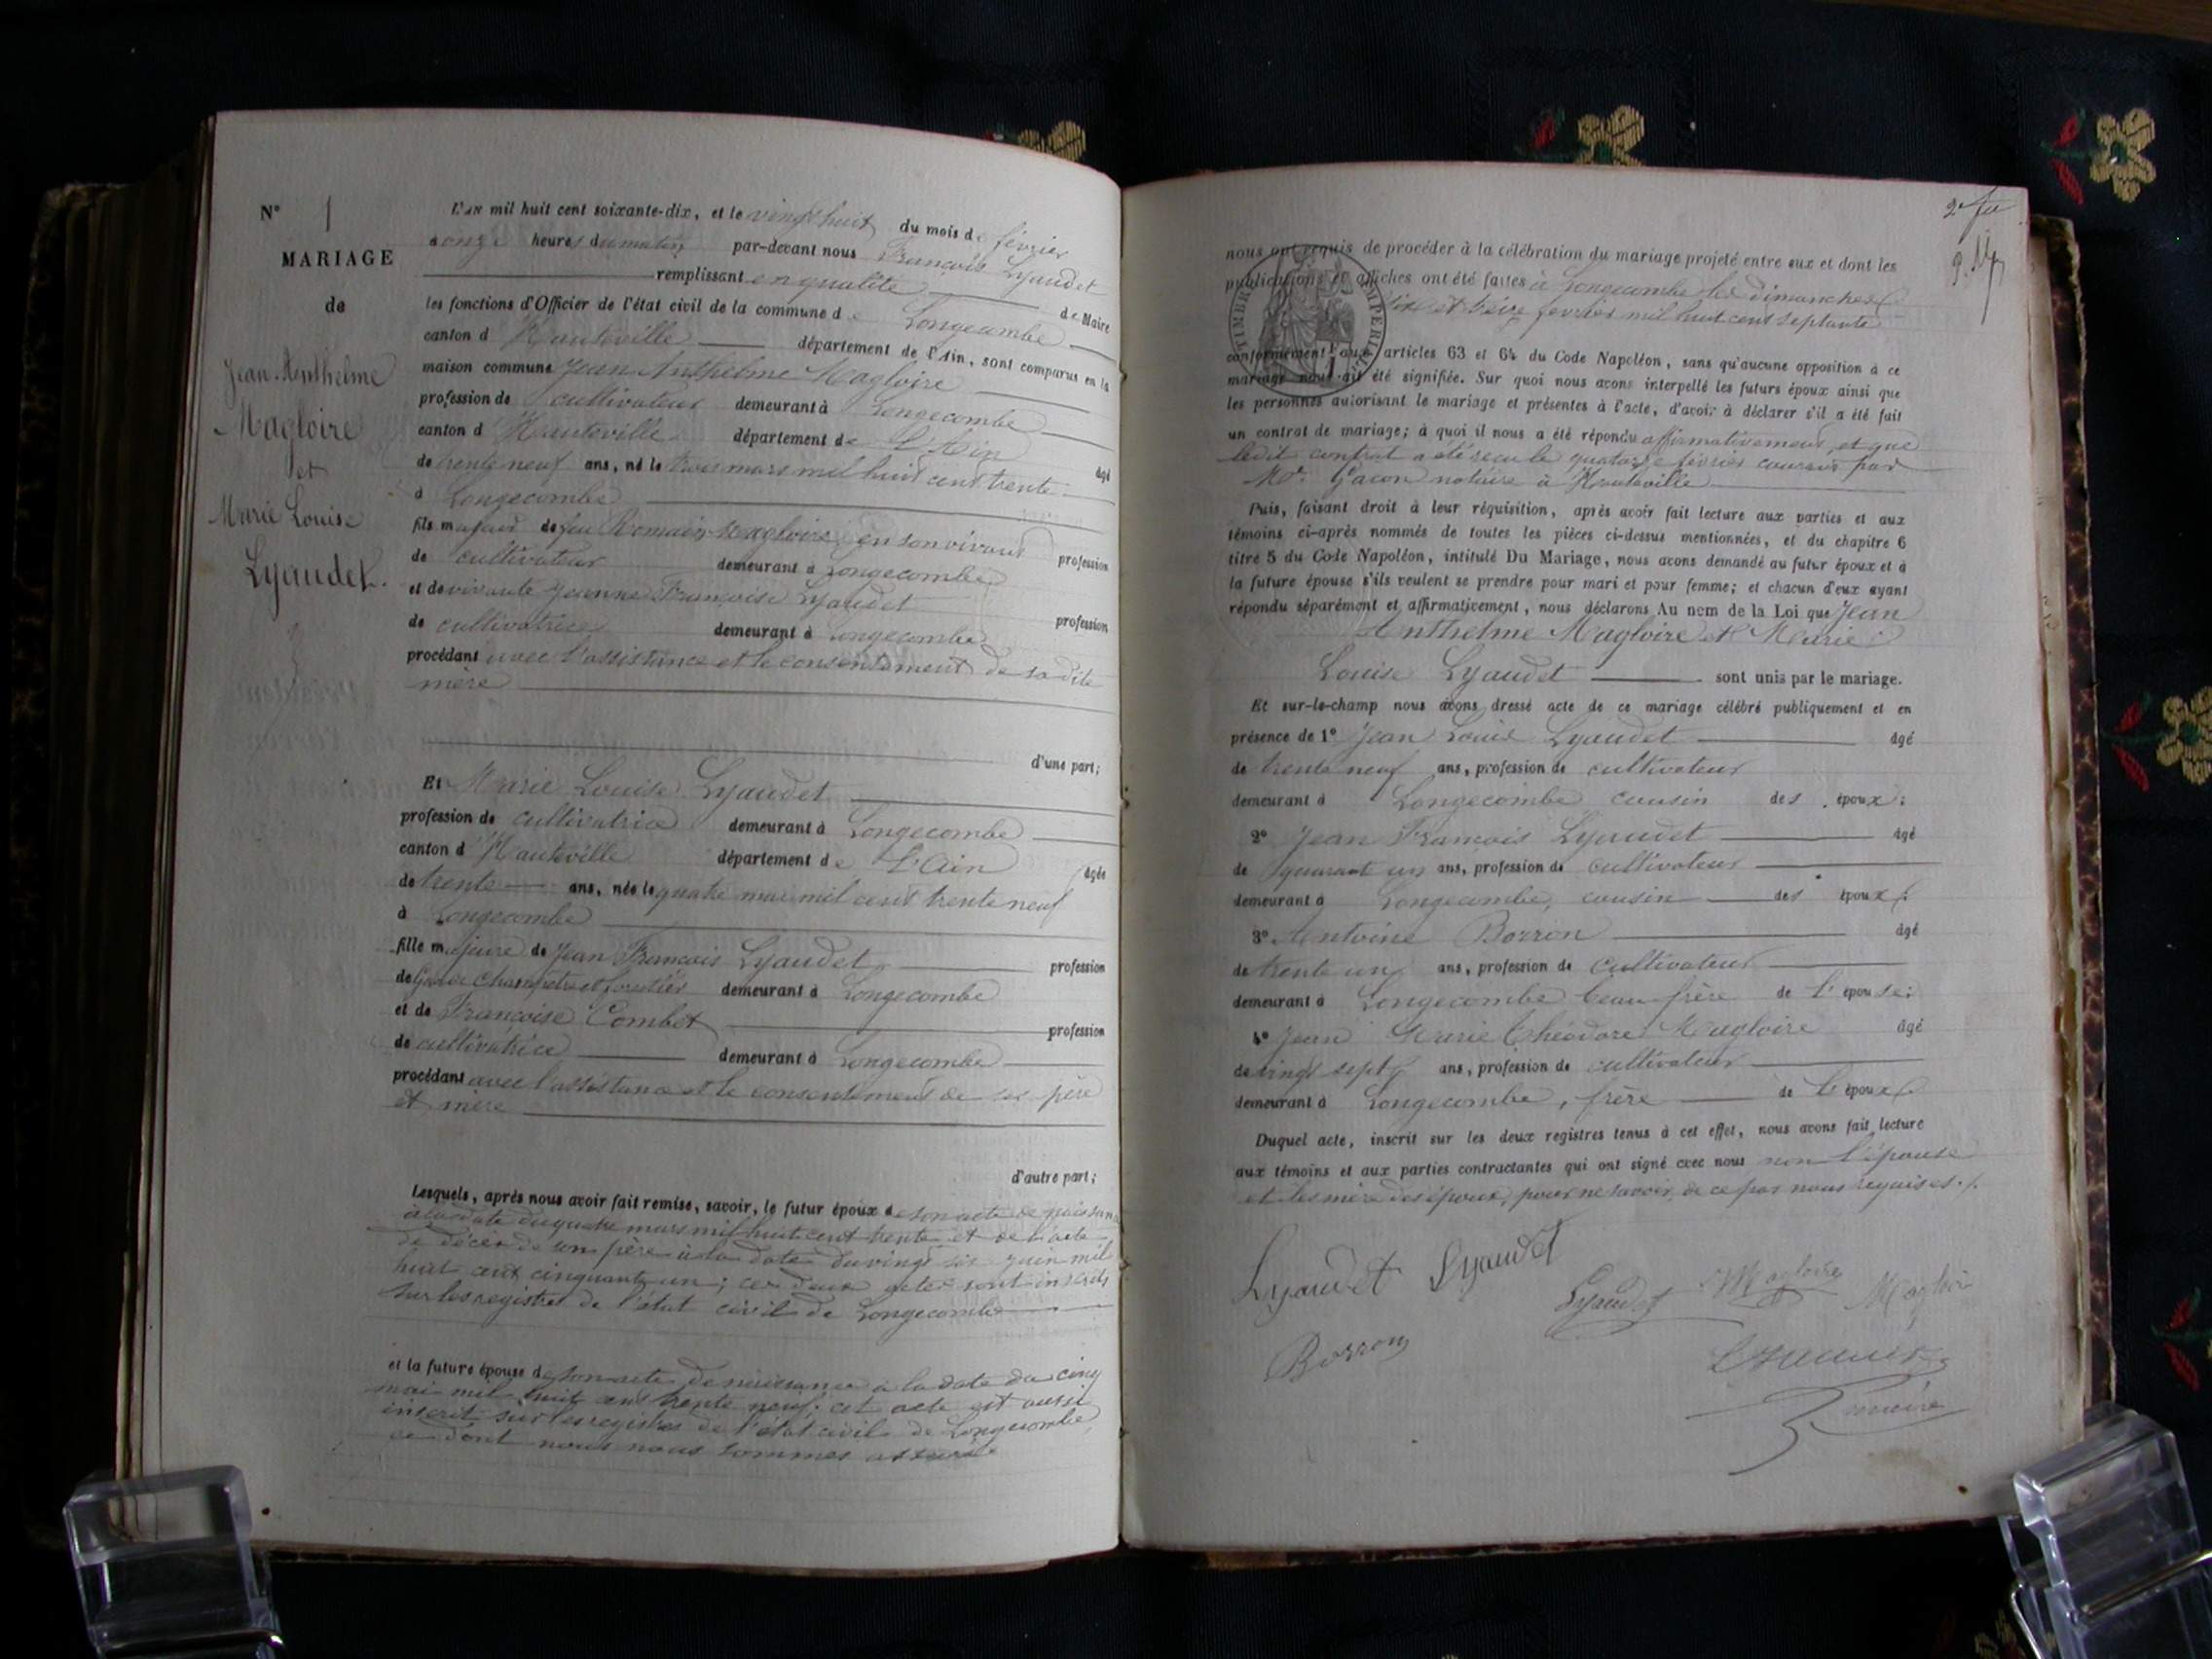 N° 1
MARIAGE
de
Jean Anthelme
Magloire
et
Marie Louise
Lyaudet.
L'AN mil huit cent soixante-dix, et le vingt huit du mois de février
à onze heures du matin par-devant nous François Lyaudet
remplissant en qualité de Maire
les fonctions d'Officier de l'état civil de la commune de Longecombe
canton d'Hauteville département de l'Ain, sont comparus en la
maison commune Jean Anthelme Magloire
profession de cultivateur demeurant à Longecombe
canton d'Hauteville département de L'Ain âgé
de trente neuf ans, né le trois mars mil huit cent trente
à Longecombe
fils majeur de feu Romain Magloire, en son vivant profession
de cultivateur demeurant à Longecombe
et de vivante Jeanne Françoise Lyaudet profession
de cultivatrice demeurant à Longecombe
procédant avec l'assistance et le consentement de sa dite
mère
d'une part;
Et Marie Louise Lyaudet
profession de cultivatrice demeurant à Longecombe
canton d'Hauteville département de L'Ain âgée
de trente ans, née le quatre mai mil cent trente neuf
à Longecombe
fille majeure de Jean François Lyaudet profession
de Garde Champêtre et forestier demeurant à Longecombe
et de Françoise Combet profession
de cultivatrice demeurant à Longecombe
procédant avec l'assistance et le consentement de ses père
et mère
d'autre part;
Lesquels, après nous avoir fait remise, savoir, le futur époux de son acte de naissance
à la date du quatre mars mil huit cent trente et de l'acte
de décès de son père à la date du vingt six juin mil
huit cent cinquante un; ces deux actes sont inscrits
sur les registres de l'état civil de Longecombe
et la future épouse de son acte de naissance à la date du cinq
mai mil huit cent trente neuf; cet acte est aussi
inscrit sur les registres de l'état civil de Longecombe,
ce dont nous nous sommes assuré
2e fu
nous ont requis de procéder à la célébration du mariage projeté entre eux et dont les
publications et affiches ont été faites à Longecombe les dimanches
six et treize février mil huit cent septante
conformément aux articles 63 et 64 du Code Napoléon, sans qu'aucune opposition à ce
mariage nous ait été signifiée. Sur quoi nous avons interpellé les futurs époux ainsi que
les personnes autorisant le mariage et présentes à l'acte, d'avoir à déclarer s'il a été fait
un contrat de mariage; à quoi il nous a été répondu affirmativement, et que
ledit contrat a été reçu le quatorze février courant par
Me. Gacon notaire à Hauteville
Puis, faisant droit à leur réquisition, après avoir fait lecture aux parties et aux
témoins ci-après nommés de toutes les pièces ci-dessus mentionnées, et du chapitre 6
titre 5 du Code Napoléon, intitulé Du Mariage, nous avons demandé au futur époux et à
la future épouse s'ils veulent se prendre pour mari et pour femme; et chacun d'eux ayant
répondu séparément et affirmativement, nous déclarons Au nom de la Loi que Jean
Anthelme Magloire et Marie
Louise Lyaudet sont unis par le mariage.
Et sur-le-champ nous avons dressé acte de ce mariage célébré publiquement et en
présence de 1° Jean Louis Lyaudet âgé
de trente neuf ans, profession de cultivateur
demeurant à Longecombe cousin des époux;
2° Jean François Lyaudet âgé
de quarant un ans, profession de cultivateur
demeurant à Longecombe, cousin des époux;
3° Antoine Borron âgé
de trente un ans, profession de cultivateur
demeurant à Longecombe beau-frère de l'épouse;
4° Jean Marie Théodore Magloire âgé
de vingt sept ans, profession de cultivateur
demeurant à Longecombe, frère de l'époux
Duquel acte, inscrit sur les deux registres tenus à cet effet, nous avons fait lecture
aux témoins et aux parties contractantes qui ont signé avec nous non l'épouse
et les mère des époux, pour ne savoir, de ce par nous requises ./.
Lyaudet Lyaudet
Lyaudet Magloire Magloire
Borron
Lyaudet
maire
TIMBRE IMPÉRIAL